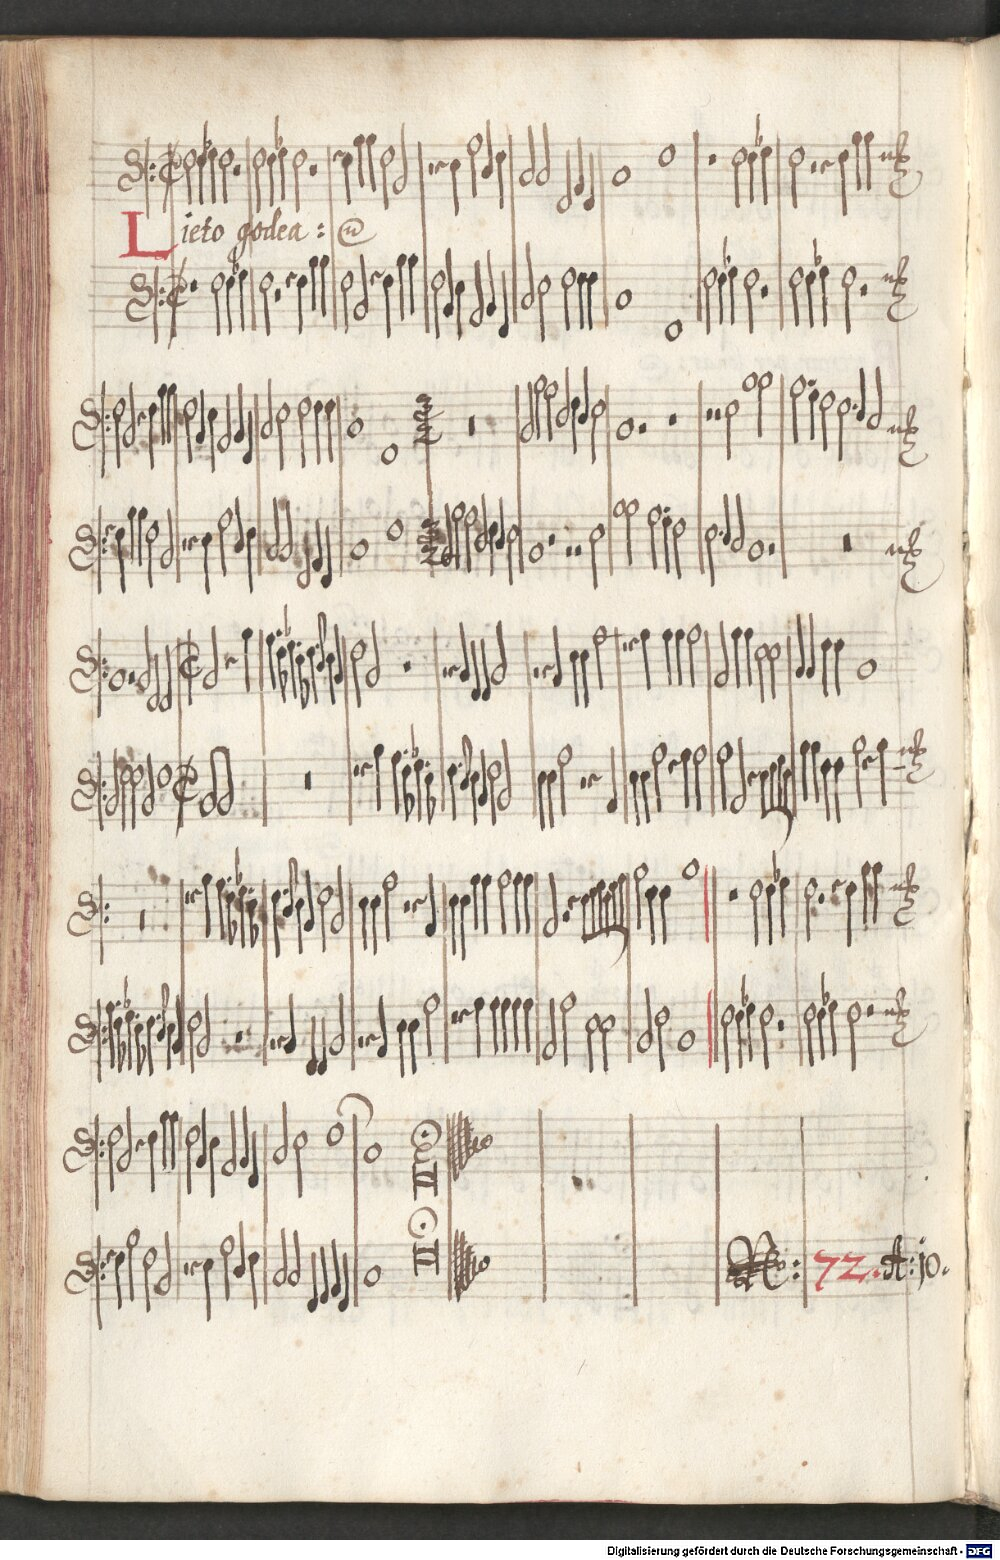 Lieto godea: @
R: 72. A: jo.
Digitalisierung gefördert durch die Deutsche Forschungsgemeinschaft - DFG